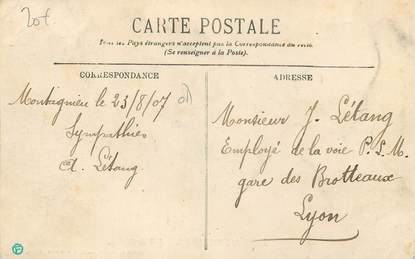 CARTE POSTALE
Tous les Pays étrangers n'acceptent pas la Correspondance au recto.
(Se renseigner à la Poste).
CORRESPONDANCE
ADRESSE
Montagnieu le 23/8/07
Sympathies
A. Létang
Monsieur J. Létang
Employé de la voie P. L. M.
gare des Brotteaux
Lyon